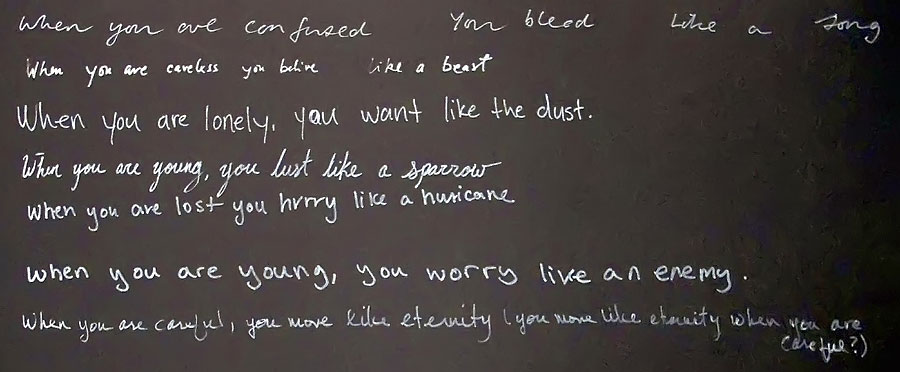 When you are confused You bleed like a song
When you are careless you belive like a beast
When you are lonely, you want like the dust.
When you are young, you lust like a sparrow
when you are lost you hurry like a huricane
when you are young, you worry like an enemy.
When you are careful, you move like eternity (you move like eternity when you are
careful?)